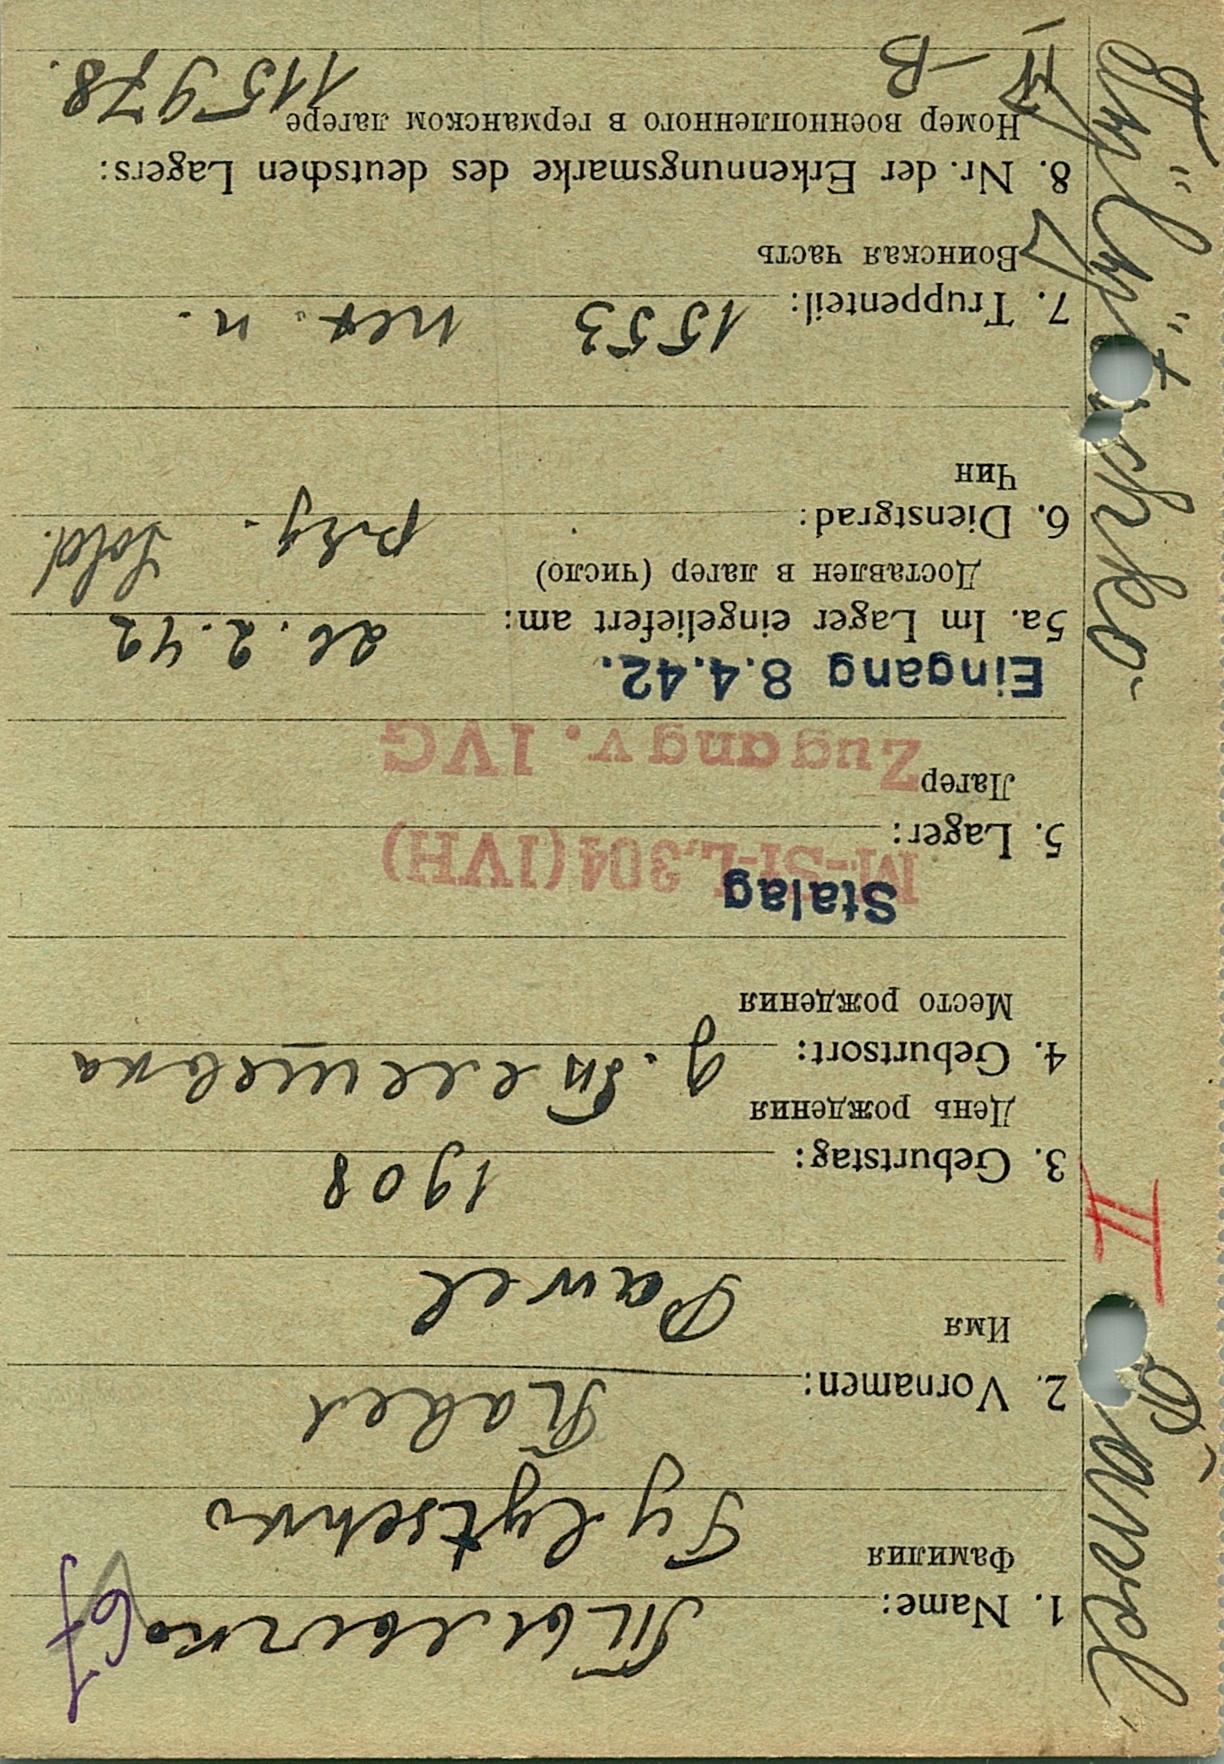 Tylytschko Pawel
II
67
Тылычко
1. Name:
Фамилия
Tylytschko
Павел
2. Vornamen:
Имя
Pawel
1908
3. Geburtstag:
День рождения
4. Geburtsort:
Место рождения
Stalag
M.-St-L.304(IVH)
5. Lager:
Лагерь
Zugang v. IVG
Eingang 8.4.42.
5a. Im Lager eingeliefert am: 26.2.42
Доставлен в лагерь (число)
6. Dienstgrad: ряд. Sold.
Чин
7. Truppenteil: 1553 п.
Воинская часть
8. Nr. der Erkennungsmarke des deutschen Lagers:
Номер военнопленного в германском лагере
IV-B 115978.